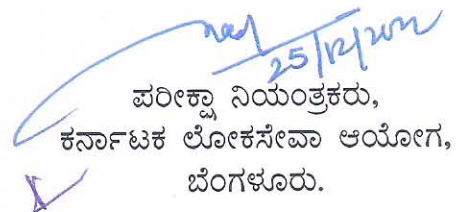 25/12/2022
ಪರೀಕ್ಷಾ ನಿಯಂತ್ರಕರು,
ಕರ್ನಾಟಕ ಲೋಕಸೇವಾ ಆಯೋಗ,
ಬೆಂಗಳೂರು.